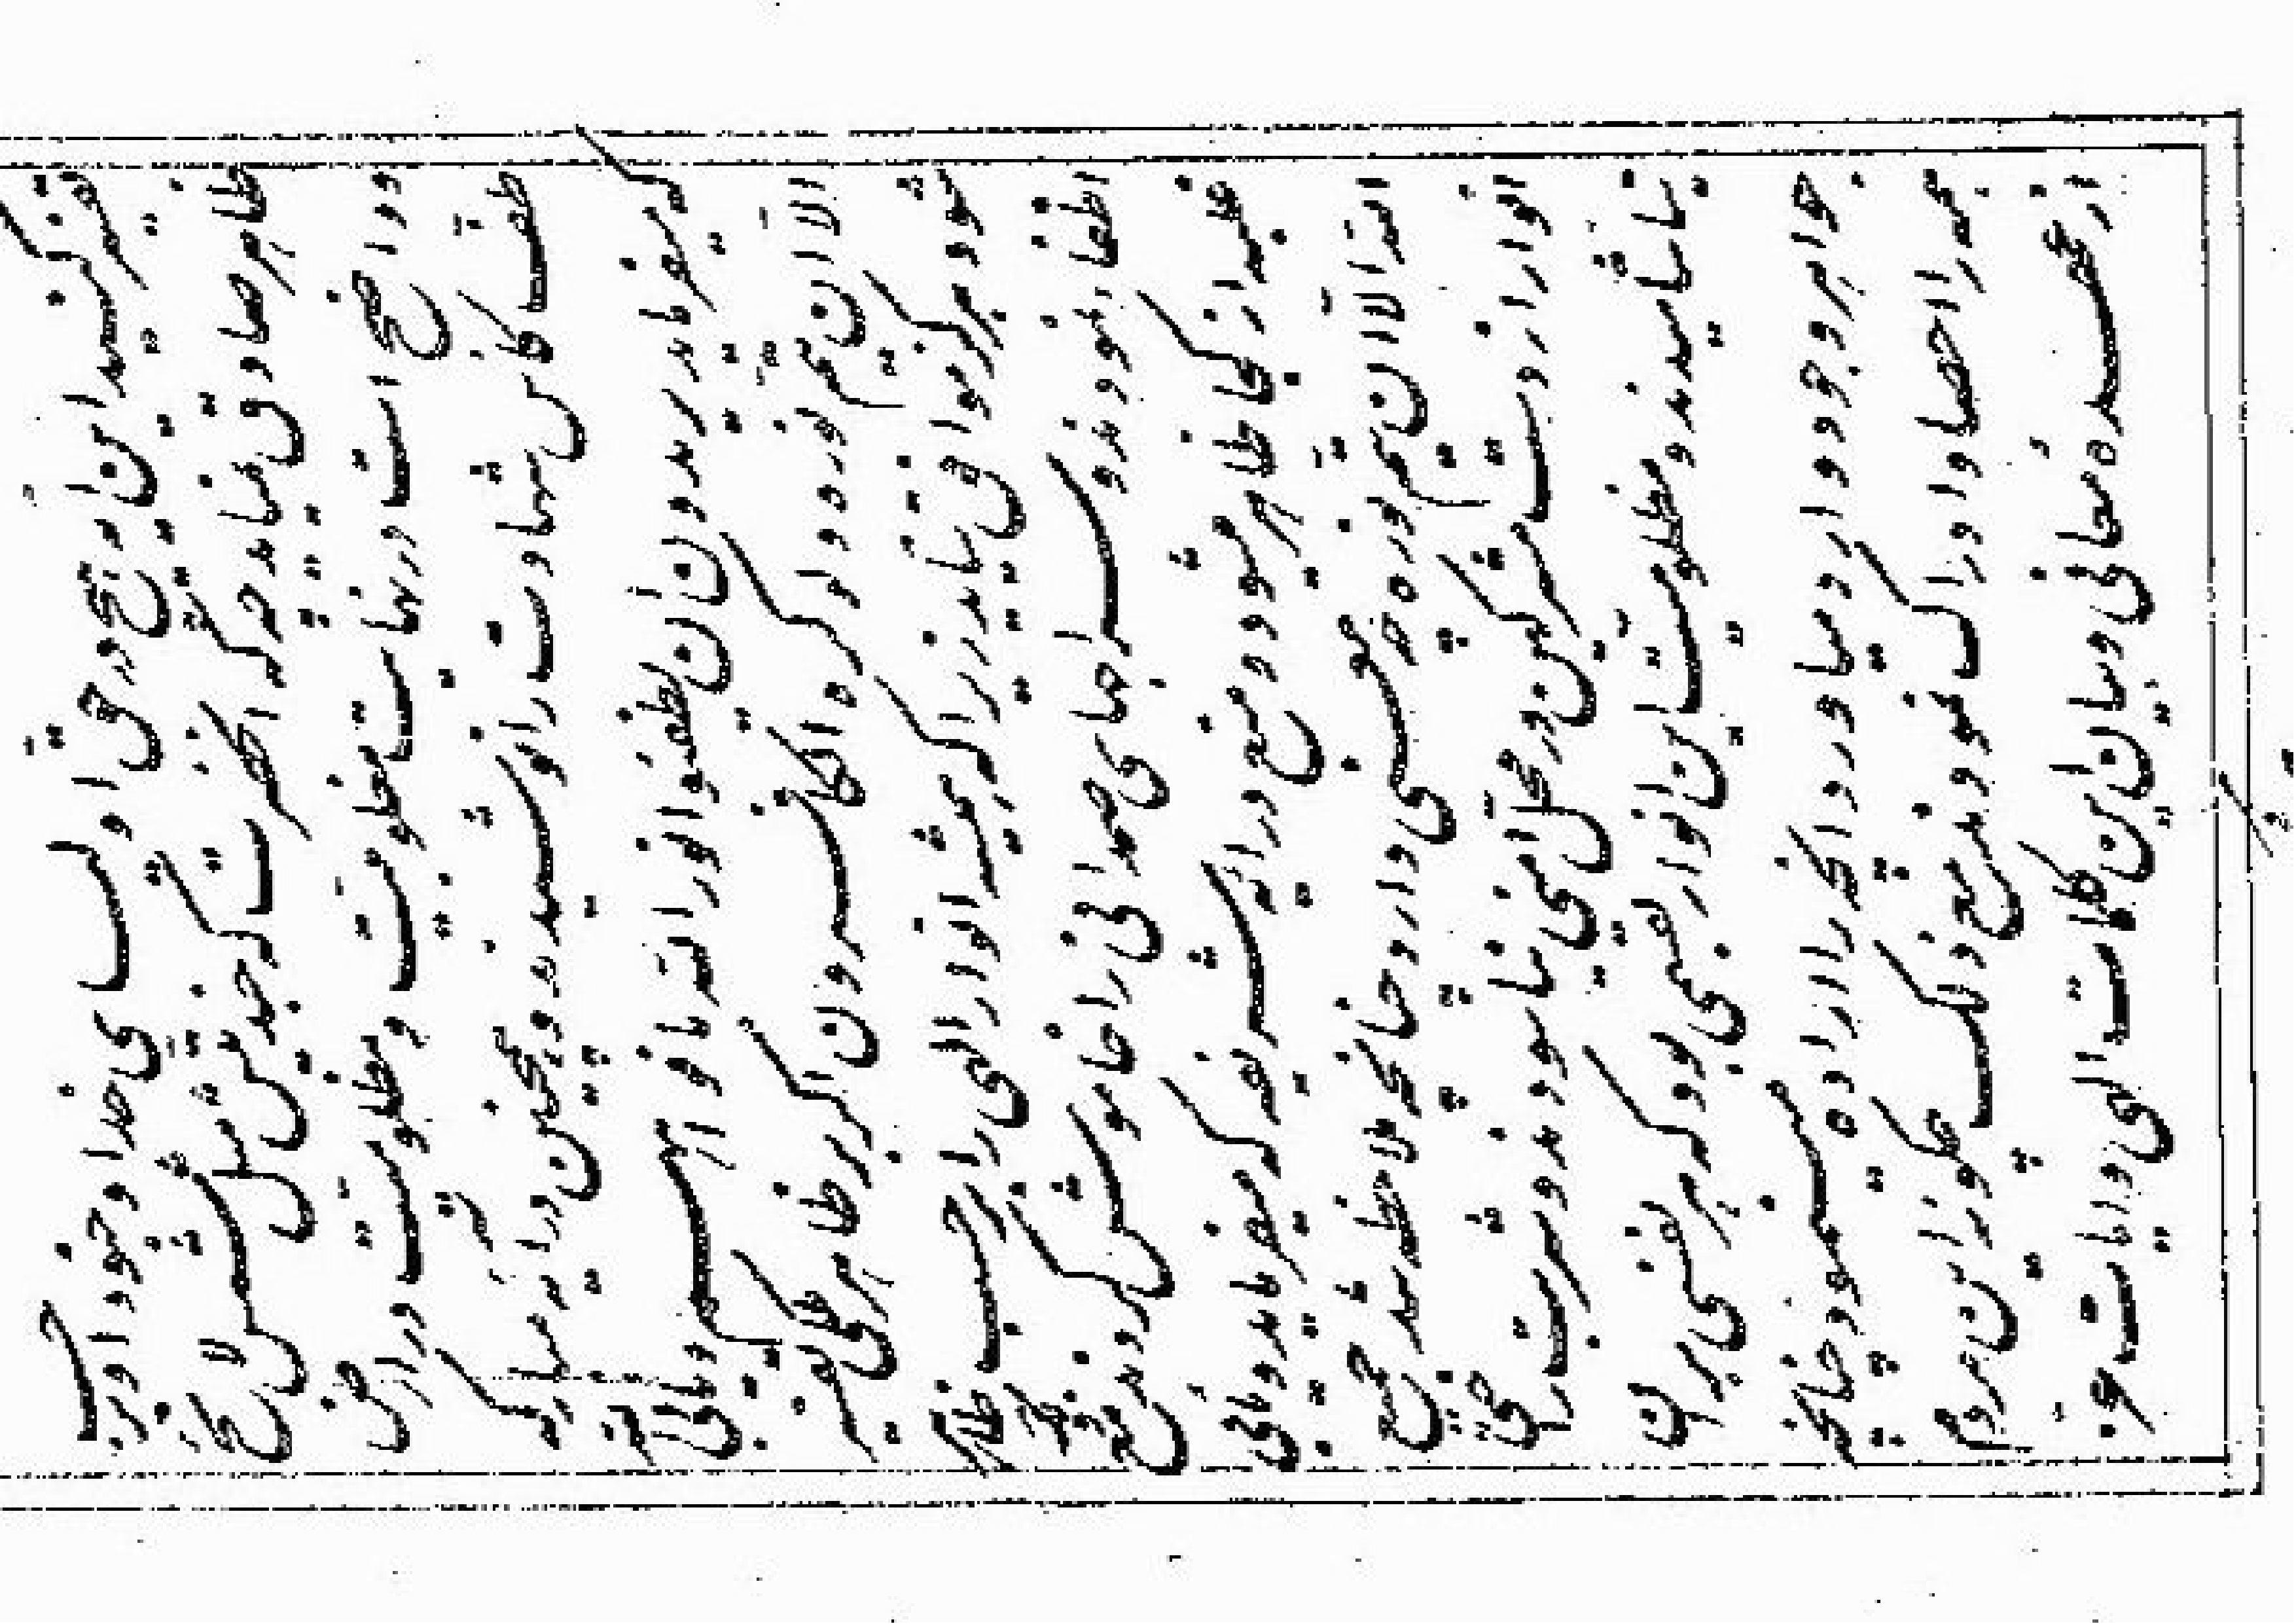 تفسیر کنید این ایه در حق اولیای خدا و جنود او بر حسب
ظاهر صادق نیاید چه که انحضرت که جندیتش مثل شمس لائح
و واضح است در نهایت مغلوبیت و مظلومیت در ارض
طف کاس شهادت را نوشیدند و همچنین در ایه مبارکه
که میفرماید یریدون ان یطفئوا نور الله بافواههم و یابی الله
الا ان یتم نوره ولو کره الکافرون اگر بر ظاهر ظاهر تفسیر
شود هرگز موافق نیاید زیرا که همیشه انوار الهی را بر حسب ظاهر
اطفا نمودند و سراجهای صمدانی را خاموش کردند مع ذلک
غلبه از کجا ظاهر میشود و منع در ایه شریفه که میفرماید و یابی
الله الا ان یتم نوره چه معنی دارد و چنانچه ملاحظه شد جمیع
انوار از دست مشرکین در محل امنی نیاسودند و شربت راحتی
نیاشامیدند و مظلومیت این انوار بقسمی بود که هر نفسی بر ان
جواهر وجود وارد میاورد انچه را اراده مینمود چنانچه
همه را احصا و ادراک نمودند مع ذلک چگونه این مردم
از عهده معانی و بیان این کلمات الهی و ایات عز